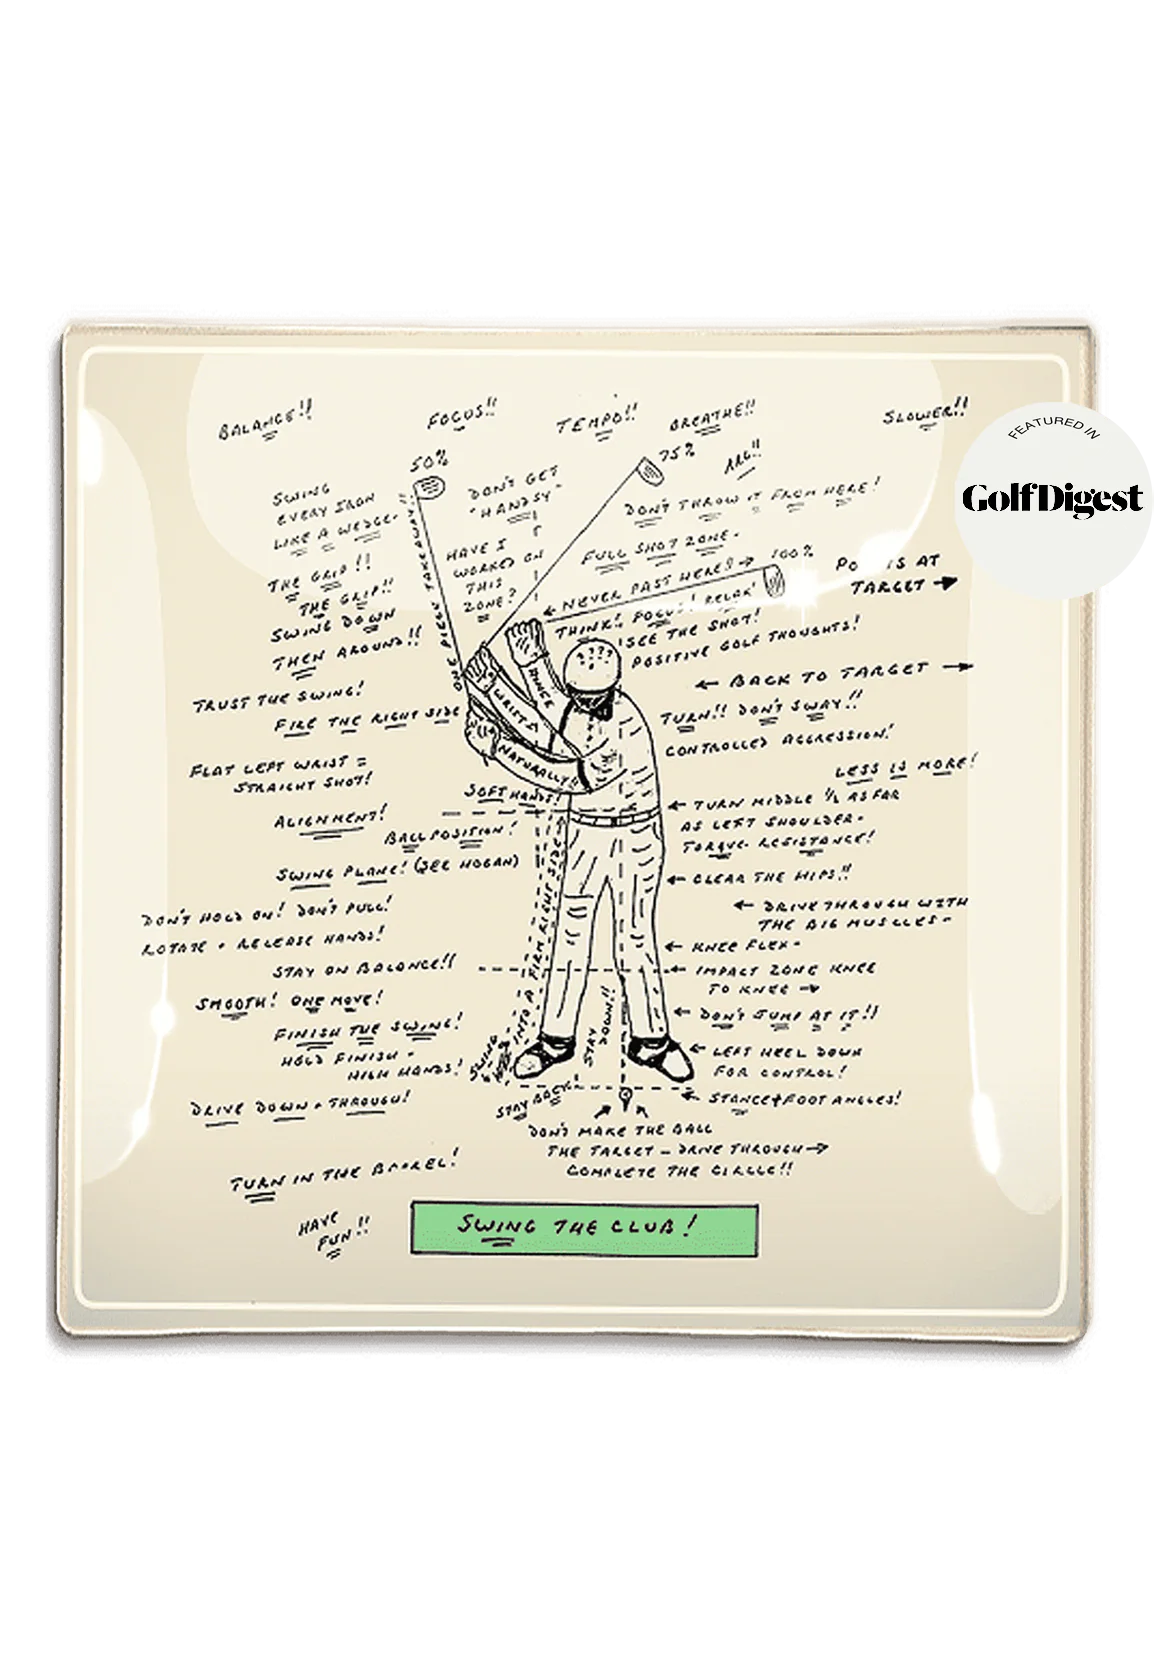 BALANCE!!
FOCUS!!
TEMPO!!
BREATHE!!
SLOWER!!
FEATURED IN
GolfDigest
50%
75%
ARG!!
SWING
EVERY IRON
LIKE A WEDGE-
DON'T GET
"HANDSY"
DON'T THROW IT FROM HERE!
ONE PIECE TAKEAWAY!!
HAVE I
WORKED ON
THIS
ZONE?
FULL SHOT ZONE-
100%
← NEVER PAST HERE!! →
THE GRIP!!
THE GRIP!!
SWING DOWN
THEN AROUND!!
THINK! FOCUS! RELAX!
SEE THE SHOT!
POSITIVE GOLF THOUGHTS!
IS AT
TARGET →
← BACK TO TARGET →
TRUST THE SWING!
FIRE THE RIGHT SIDE
HINGE
WRISTS
NATURALLY!!
TURN!! DON'T SWAY!!
CONTROLLED AGGRESSION!
LESS IS MORE!
FLAT LEFT WRIST =
STRAIGHT SHOT!
SOFT HANDS!
ALIGNMENT!
BALL POSITION!
← TURN MIDDLE 1/2 AS FAR
AS LEFT SHOULDER-
TORQUE- RESISTANCE!
SWING PLANE! (SEE HOGAN)
← CLEAR THE HIPS!!
DON'T HOLD ON! DON'T PULL!
ROTATE + RELEASE HANDS!
← DRIVE THROUGH WITH
THE BIG MUSCLES-
← KNEE FLEX-
STAY ON BALANCE!!
← IMPACT ZONE KNEE
TO KNEE →
SMOOTH! ONE MOVE!
FINISH THE SWING!
HOLD FINISH -
HIGH HANDS!
SWING
INTO A FIRM RIGHT SIDE
STAY
DOWN!!
← DON'T JUMP AT IT!!
← LEFT HEEL DOWN
FOR CONTROL!
DRIVE DOWN + THROUGH!
STAY BACK!
← STANCE + FOOT ANGLES!
DON'T MAKE THE BALL
THE TARGET - DRIVE THROUGH →
COMPLETE THE CIRCLE!!
TURN IN THE BARREL!
HAVE
FUN!!
SWING THE CLUB!